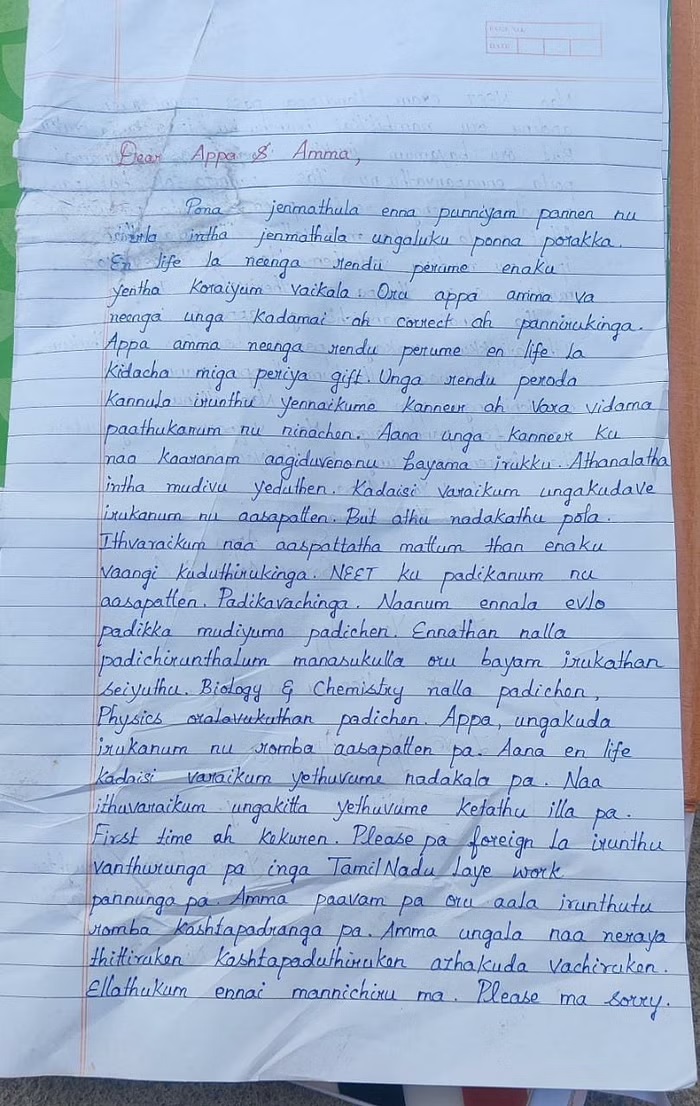 PAGE NO.
DATE
Dear Appa & Amma,
Pona jenmathula enna punniyam pannen nu
intha jenmathula ungaluku ponna porakka.
En life la neenga rendu perume enaku
yentha koraiyum vaikala. Oru appa amma va
neenga unga kadamai ah correct ah pannirukinga.
Appa amma neenga rendu perume en life la
kidacha miga periya gift. Unga rendu peroda
kannula irunthu yennaikume kanneer ah vara vidama
paathukanum nu ninachen. Aana unga kanneer ku
naa kaaranam aagiduvenonu bayama irukku. Athanalatha
intha mudivu yeduthen. Kadaisi varaikum ungakudave
irukanum nu aasapatten. But athu nadakathu pola.
Ithvaraikum naa aaspattatha mattum than enaku
vaangi kuduthirukinga. NEET ku padikanum nu
aasapatten. Padikavachinga. Naanum ennala evlo
padikka mudiyumo padichen. Ennathan nalla
padichirunthalum manasukulla oru bayam irukathan
seiyuthu. Biology & Chemistry nalla padichen,
Physics oralavukuthan padichen. Appa, ungakuda
irukanum nu romba aasapatten pa. Aana en life
kadaisi varaikum yethuvume nadakala pa. Naa
ithuvaraikum ungakitta yethuvume ketathu illa pa.
First time ah kekuren. Please pa foreign la irunthu
vanthurunga pa inga TamilNadu laye work
pannunga pa. Amma paavam pa oru aala irunthutu
romba kashtapadranga pa. Amma ungala naa neraya
thittiruken kashtapaduthiruken azhakuda vachiruken.
Ellathukum ennai mannichiru ma. Please ma sorry.